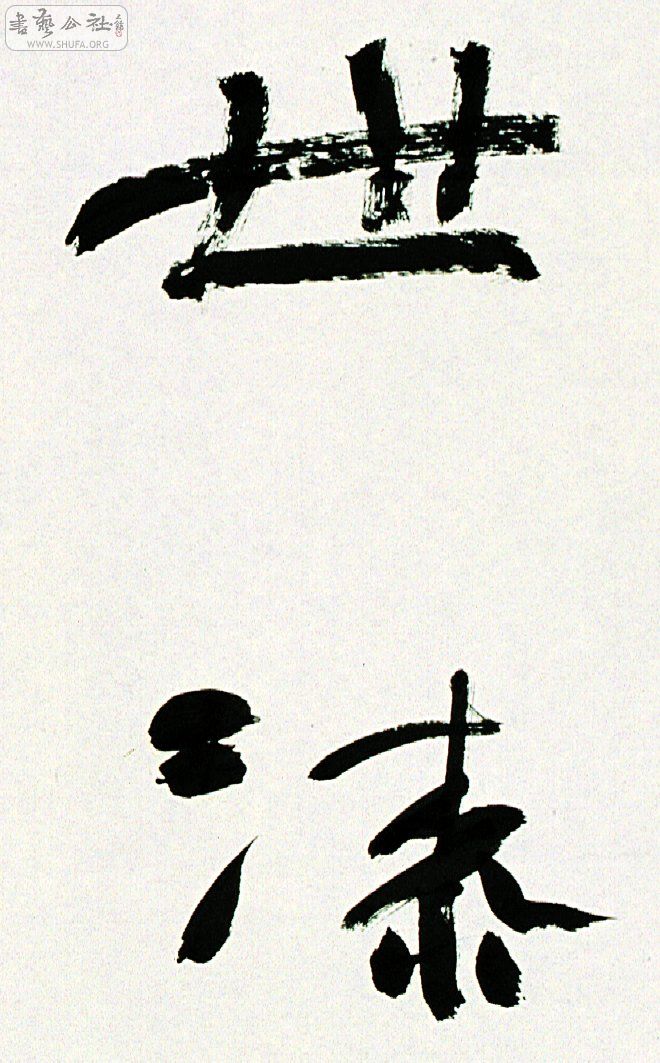 書藝公社
WWW.SHUFA.ORG
世
漆